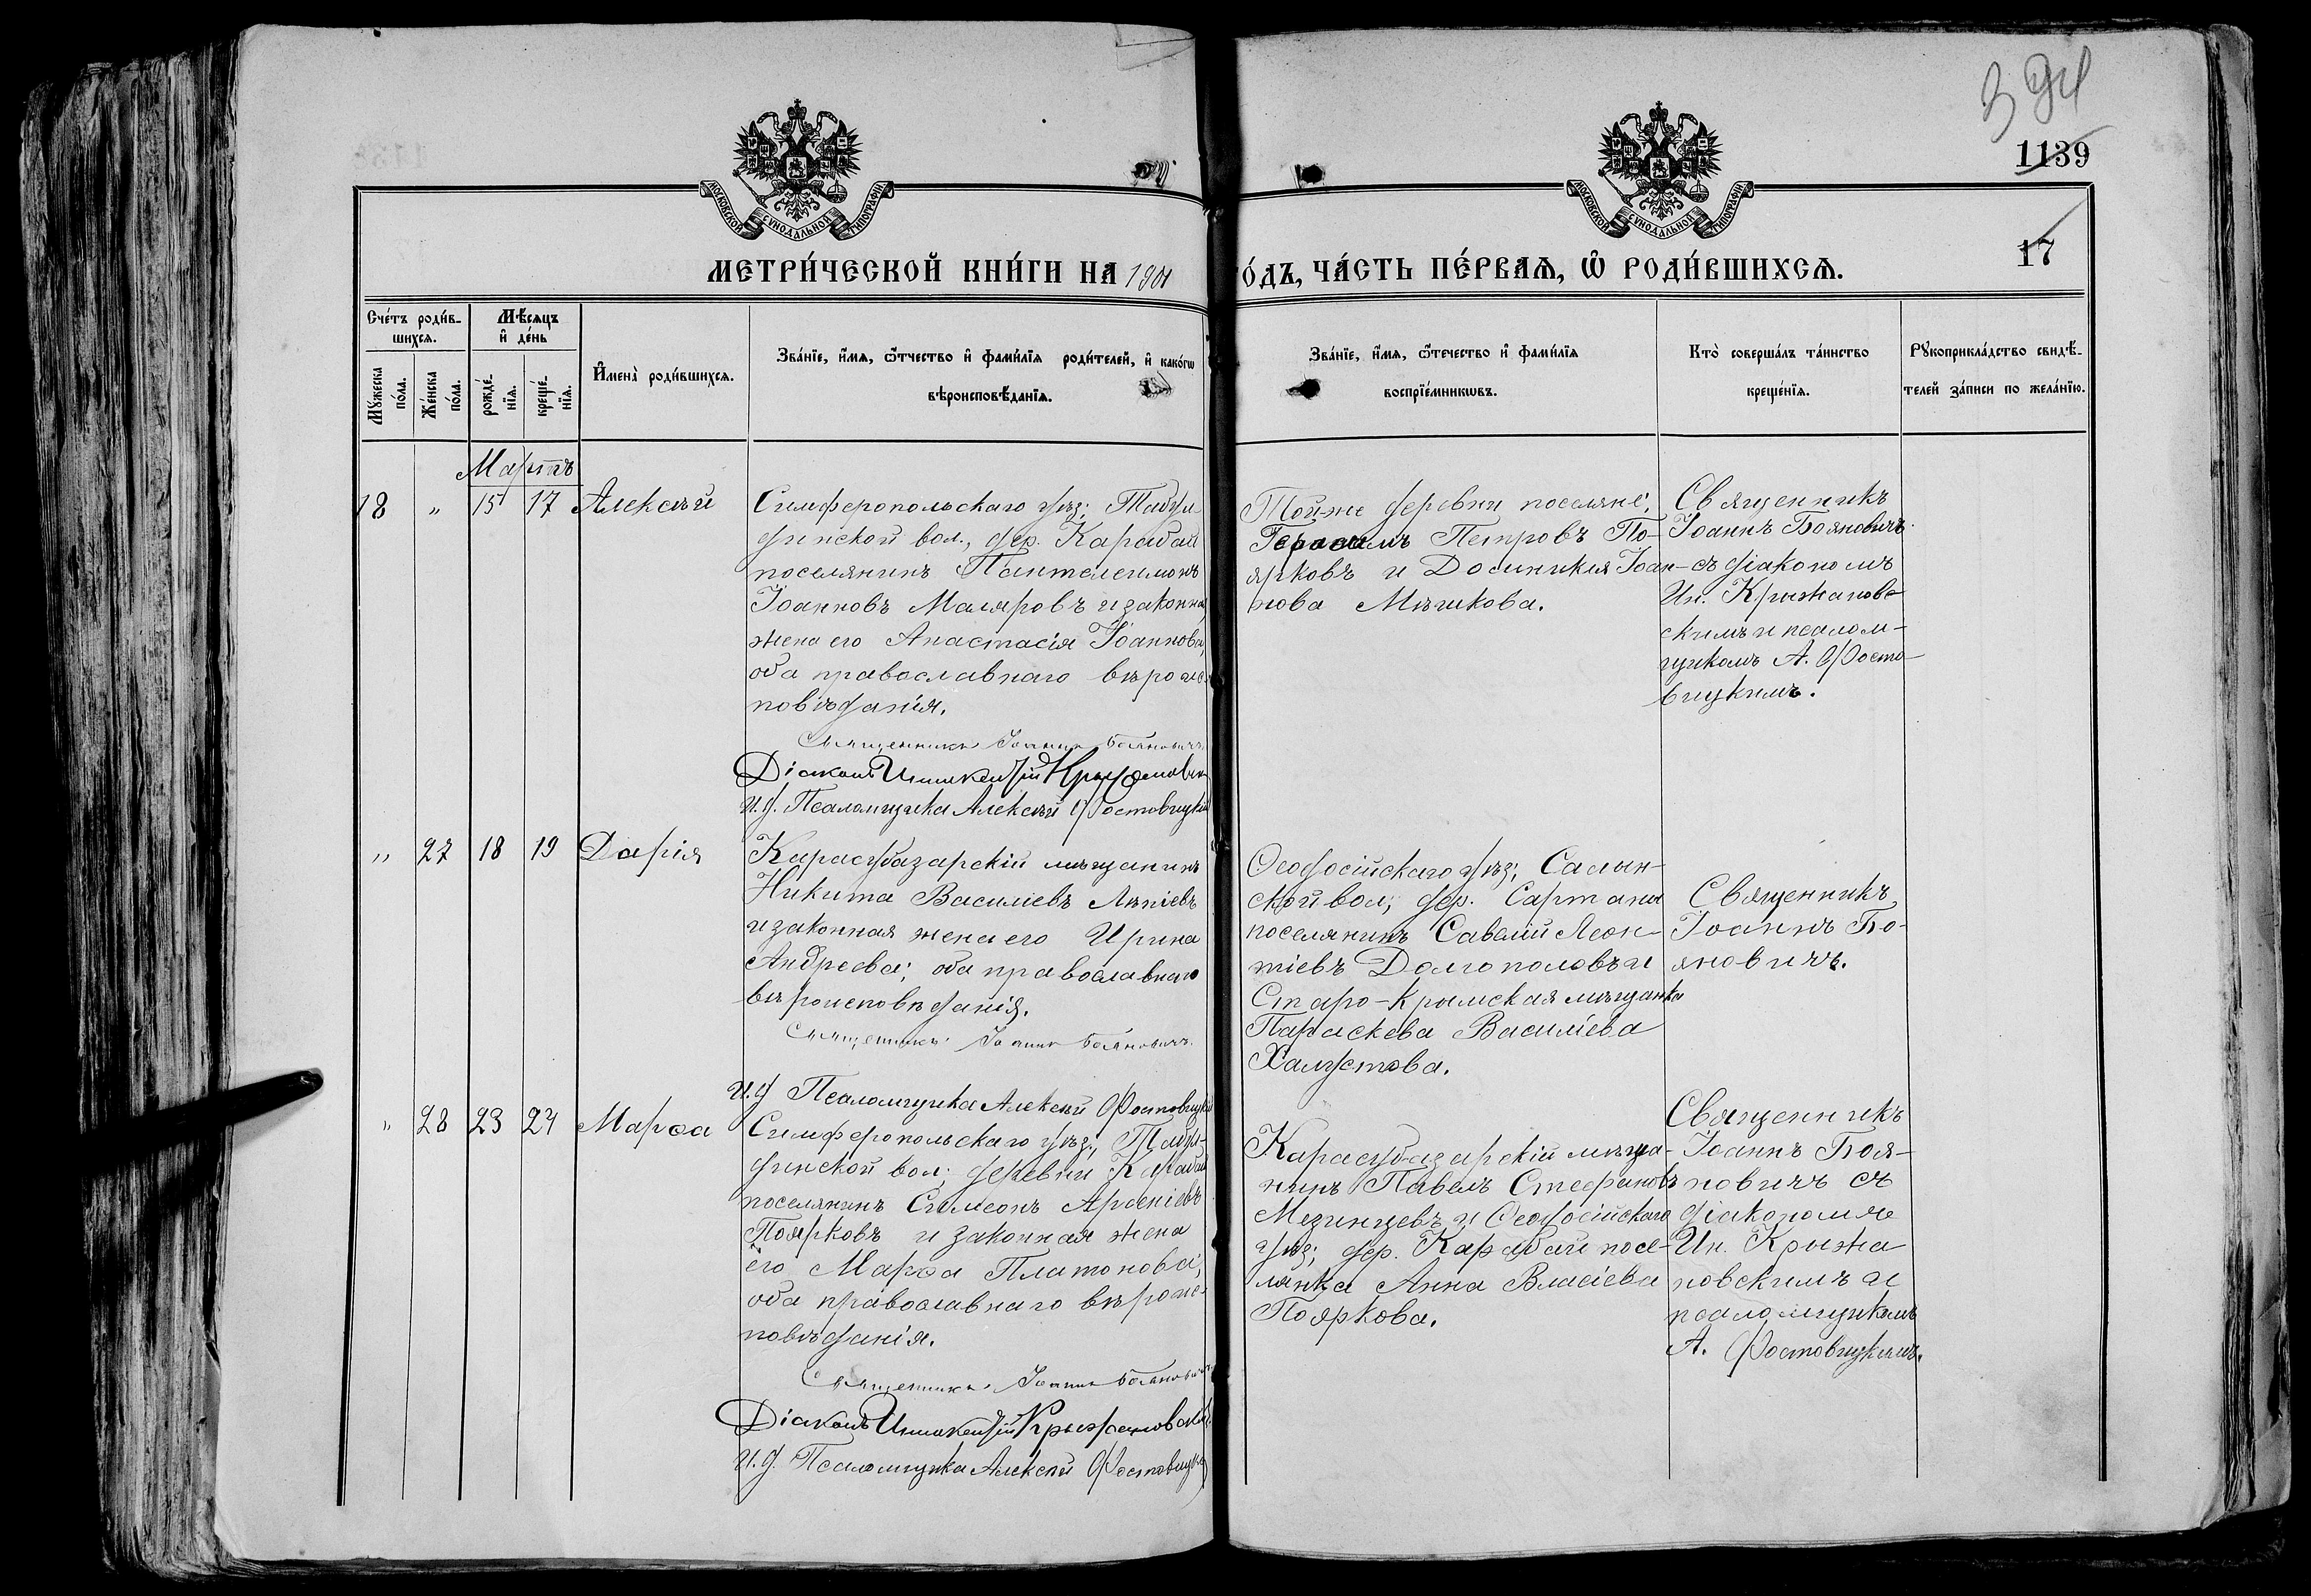 394
1139
17
МОСКОВСКОЙ СѴНОДАЛЬНОЙ ТИПОГРАФІИ
МОСКОВСКОЙ СѴНОДАЛЬНОЙ ТИПОГРАФІИ
МЕТРИ́ЧЕСКОЙ КНИ́ГИ НА 1901
О́ДЪ, ЧА́СТЬ ПЕ́РВАѦ, Ѡ҆ РОДИ́ВШИХСѦ.
Сче́тъ роди́в-
шихсѧ.
Мѣ́сѧцъ
и҆ де́нь
Мꙋ́жеска
по́ла.
Же́нска
по́ла.
рожде́-
нїѧ.
креще́-
нїѧ.
И҆мена̀ роди́вшихсѧ.
Зва́нїе, и҆́мѧ, ѻ҆́тчество и҆ фами́лїѧ роди́телей, и҆ како́гѡ
вѣроисповѣ́данїѧ.
Зва́нїе, и҆́мѧ, ѻ҆́течество и҆ фами́лїѧ
воспрїе́мникѡвъ.
Кто̀ соверша́лъ та́инство
креще́нїѧ.
Рꙋкоприкла́дство свидѣ́-
телей за́писи по жела́нїю.
Мартъ
18 " 15 17 Алексѣй
Симферопольскаго уѣз; Табул
динской вол., дер. Карабай
поселянинъ Пантелеимонъ
Іоанновъ Маляровъ и законная
жена его Анастасія Іоаннова,
оба православнаго вѣроис-
повѣданія.
Священникъ Іоаннъ Бояновичъ
Діаконъ Иннокентій Крыжановскій
И. д. Псаломщика Алексѣй Фостовицкій
Той-же деревни поселяне:
Герасимъ Петровъ По-
ярковъ и Доминикія Іоан-
нова Мѣшкова.
Священникъ
Іоаннъ Бояновичъ
съ діакономъ
Ин. Крыжанов-
скимъ и псалом-
щикомъ А. Фосто-
вицкимъ.
" 27 18 19 Дарія
Карасубазарскій мѣщанинъ
Никита Василіевъ Лѣпіевъ
и законная жена его Ирина
Андреева; оба православнаго
вѣроисповѣданія.
Священникъ Іоаннъ Бояновичъ.
И. д Псаломщика Алексѣй Фостовицкій
Ѳеодосійскаго уѣз; Салын-
ской вол; дер. Сартана
поселянинъ Савелій Леон-
тіевъ Долгополовъ и
Старо-Крымская мѣщанка
Параскева Василіева
Халустова.
Священникъ
Іоаннъ Бо-
яновичъ.
" 28 23 24 Марѳа
Симферопольскаго уѣз; Табул-
динской вол; деревни Карабай
поселянинъ Симеонъ Арсеніевъ
Поярковъ и законная жена
его Марѳа Платонова;
оба православнаго вѣроис-
повѣданія.
Священникъ Іоаннъ Бояновичъ
Діаконъ Иннокентій Крыжановскій
И. д. Псаломщика Алексѣй Фостовицкій
Карасубазарскій мѣща-
нинъ Павелъ Стефановъ
Мезинцевъ и Ѳеодосійскаго
уѣз; дер. Карабай посе-
лянка Анна Власіева
Пояркова.
Священникъ
Іоаннъ Боя-
новичъ съ
діакономъ
Ин. Крыжа
новскимъ и
псаломщикомъ
А. Фостовицкимъ.